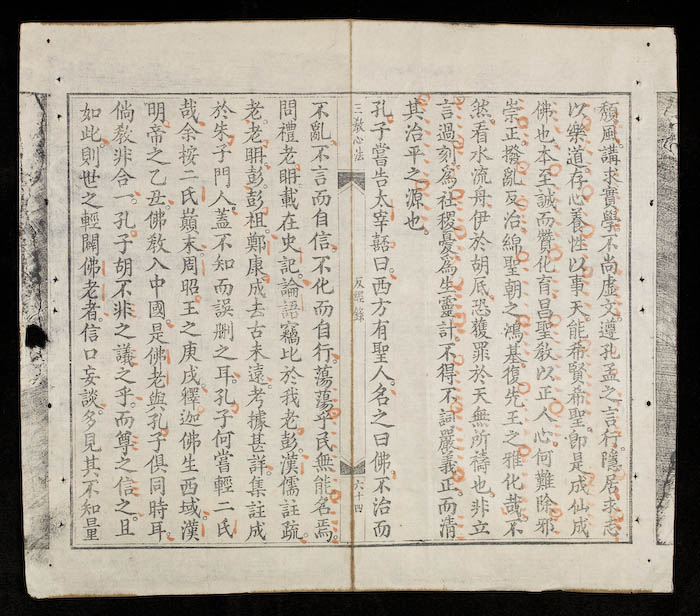 頹風。講求實學。不尚虛文。遵孔孟之言行。隱居求志
以樂道。存心養性以事天。能希賢希聖。卽是成仙成
佛也。本至誠而贊化育。昌聖敎以正人心。何難除邪
崇正。撥亂反治。綿聖朝之鴻基。復先王之雅化哉。不
然。看水流舟伊於胡底。恐獲罪於天。無所禱也。非立
言過刻。爲社稷憂。爲生靈計。不得不詞嚴義正。而清
其治平之源也。
孔子嘗告大宰嚭曰。西方有聖人。名之曰佛。不治而
三敎心法
六十四
不亂。不言而自信。不化而自行。蕩蕩乎民無能名焉。
問禮老聃。載在史記。論語竊比於我老彭。漢儒註疏。
老。老聃。彭。彭祖。鄭康成去古未遠。考據甚詳。集註成
於朱子門人。蓋不知而誤删之耳。孔子何嘗輕二氏
哉。余按二氏巔末。周昭王之庚戌。釋迦佛生西域。漢
明帝之乙丑。佛敎入中國。是佛老與孔子俱同時耳。
倘敎非合一。孔子胡不非之議之乎。而尊之信之。且
如此。則世之輕闢佛老者。信口妄談。多見其不知量